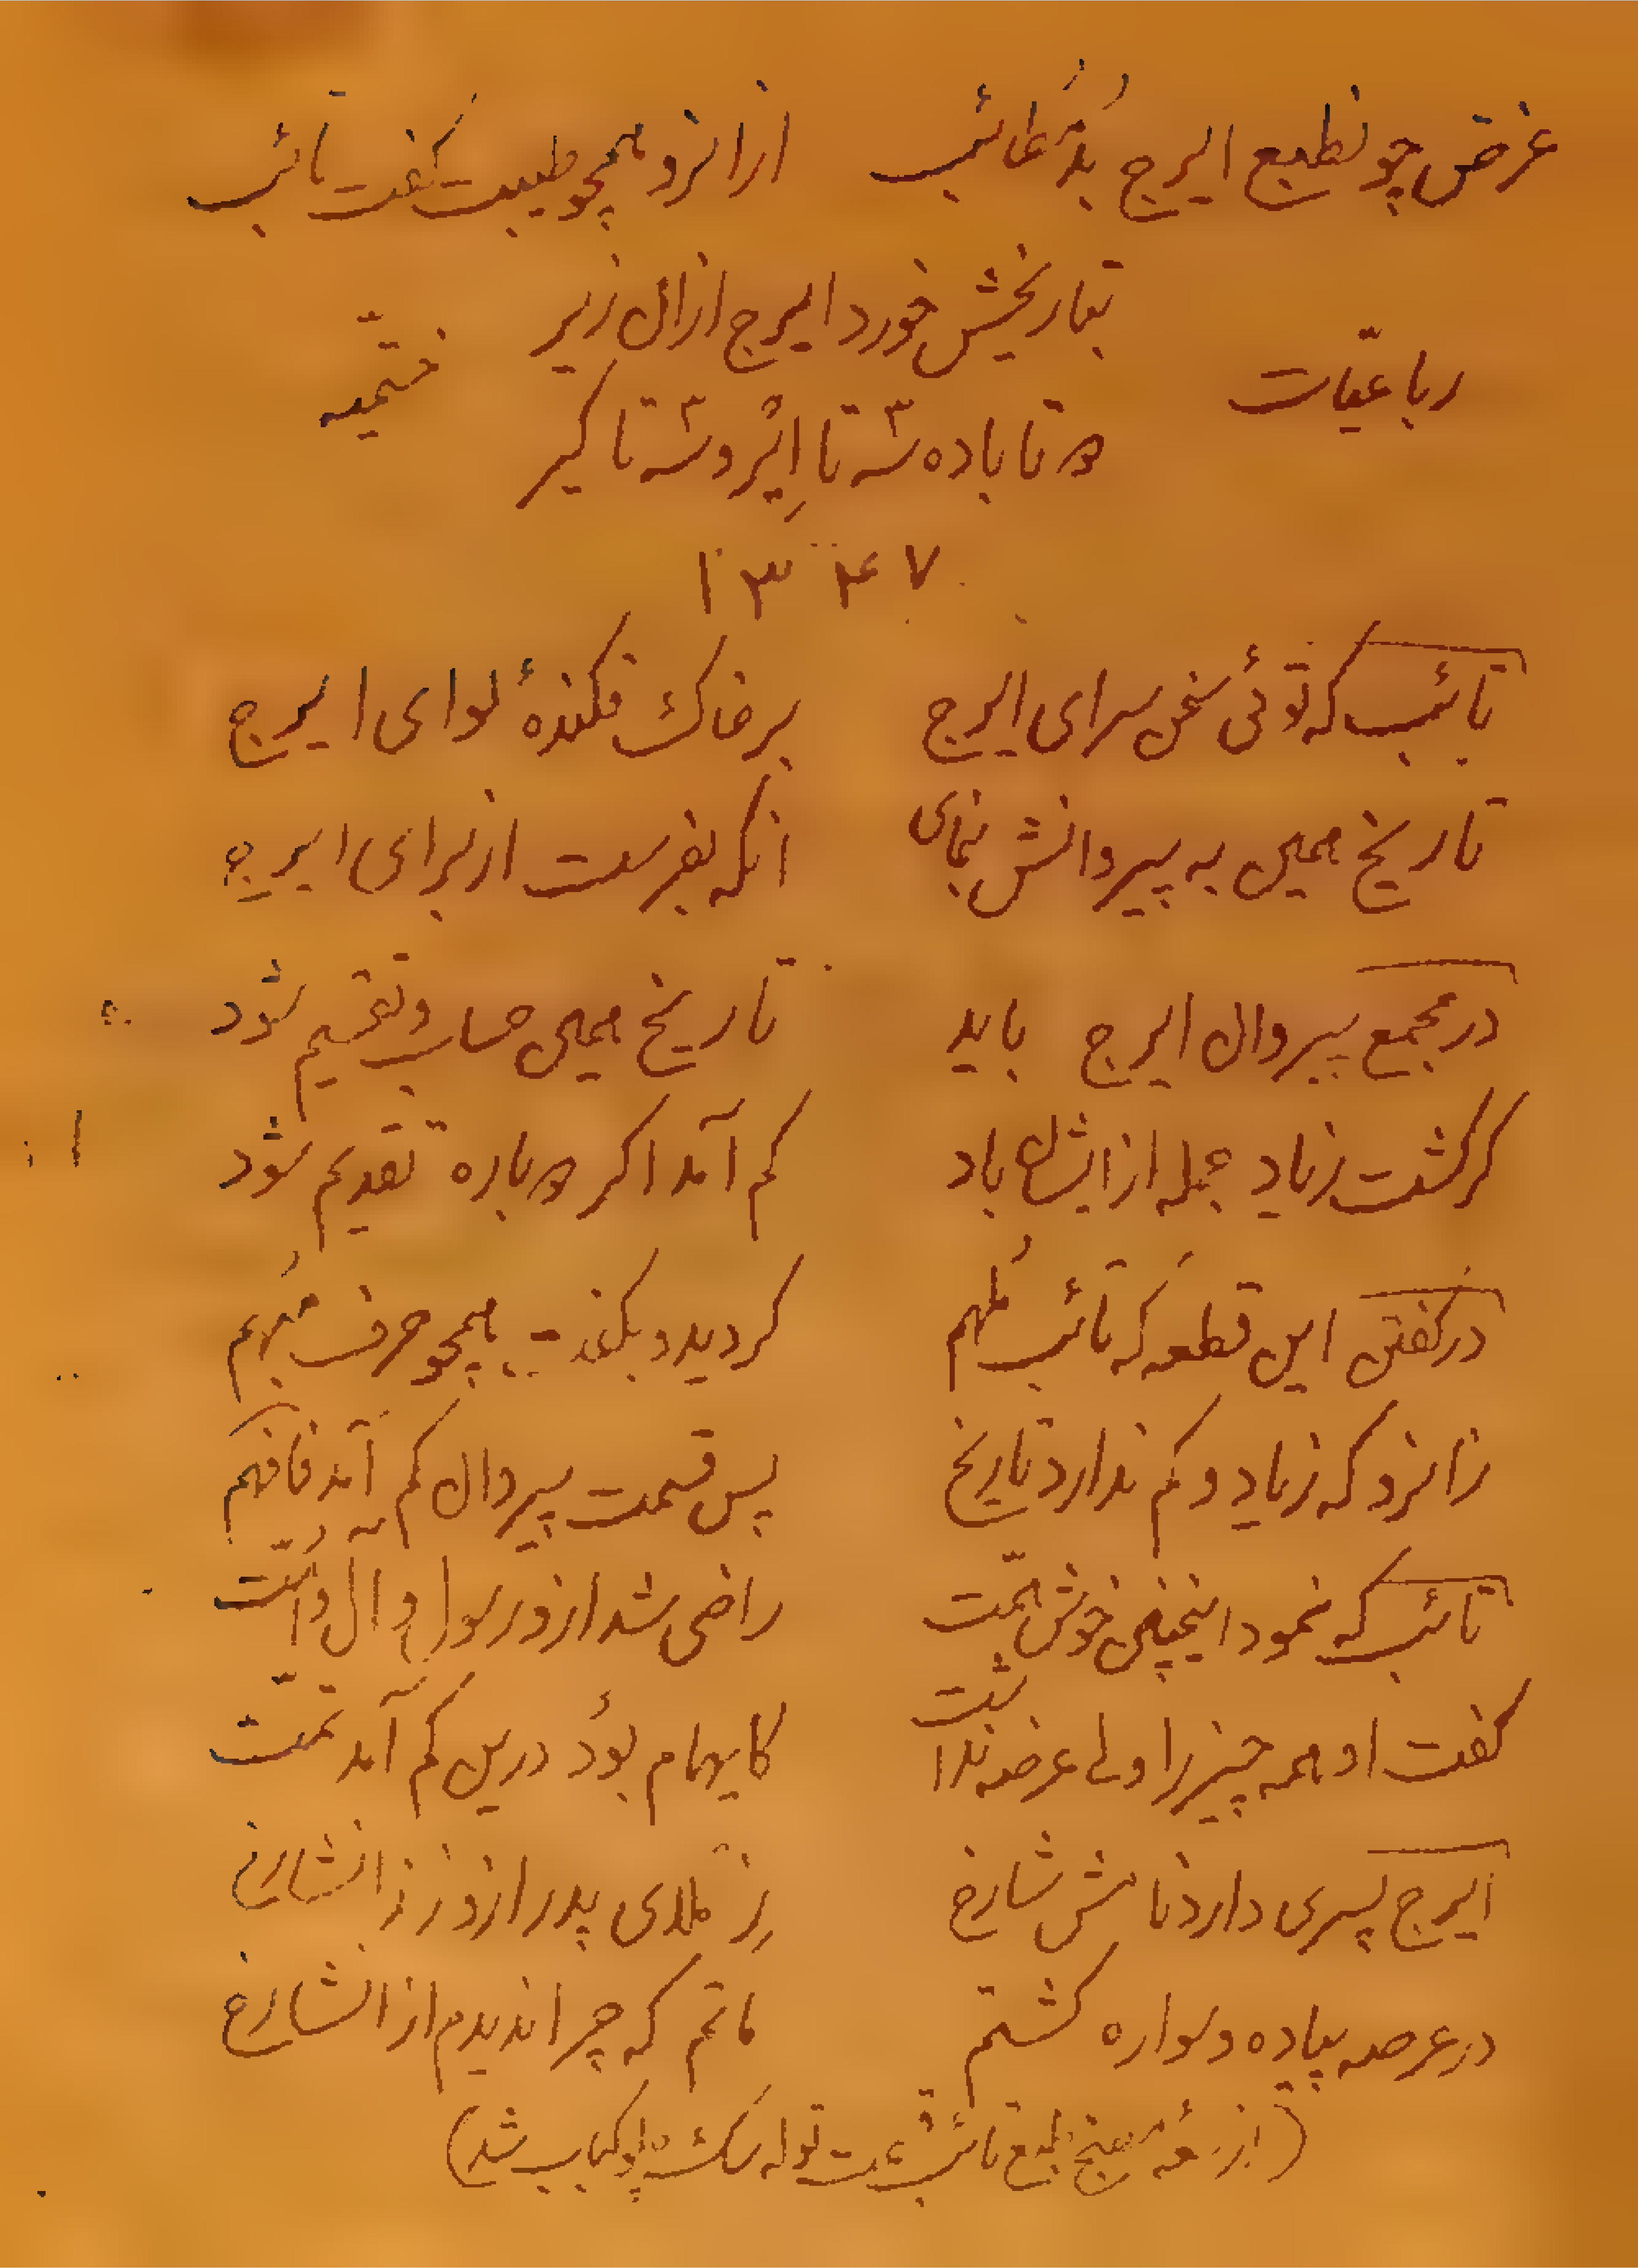 غرض چو نطبع ایرج بُد غائب ازانرو همچو طیبت گفت تائب
بتاریخش خورد ایرج ازان زیر
رباعیّات
ختمیّه
تا باده ۳ تا ایر و ۳ تا کیر
۱۳۴۷
تائب که توئی سخن سرای ایرج بر خاک فکندهٔ لوای ایرج
تاریخ همین به پیروانش بنمای انکه بفرست از برای ایرج
در مجمع پیروان ایرج باید تاریخ همین حساب و تقسیم شود
گر گشت زیاد جمله از ایشان باد کم آمد اگر دوباره تقدیم شود
در گفتن این قطعه که تائب مُلهم گردید و بگفت همچو حرف مُبهم
زانرو که زیاد و کم ندارد تاریخ پس قسمت پیروان کم آمد فافهم
تائب که نمود اینچنین خوش همّت راضی شد ازو رسول و آل و اُمّت
گفت او همه چیز را ولی عرضه نداشت کایهام بوَد درین کم آمد تمّت
ایرج پسری دارد نامش شارخ
در عرصه پیاده و سواره گشتم ماتم که چرا ندیدم از انشارخ